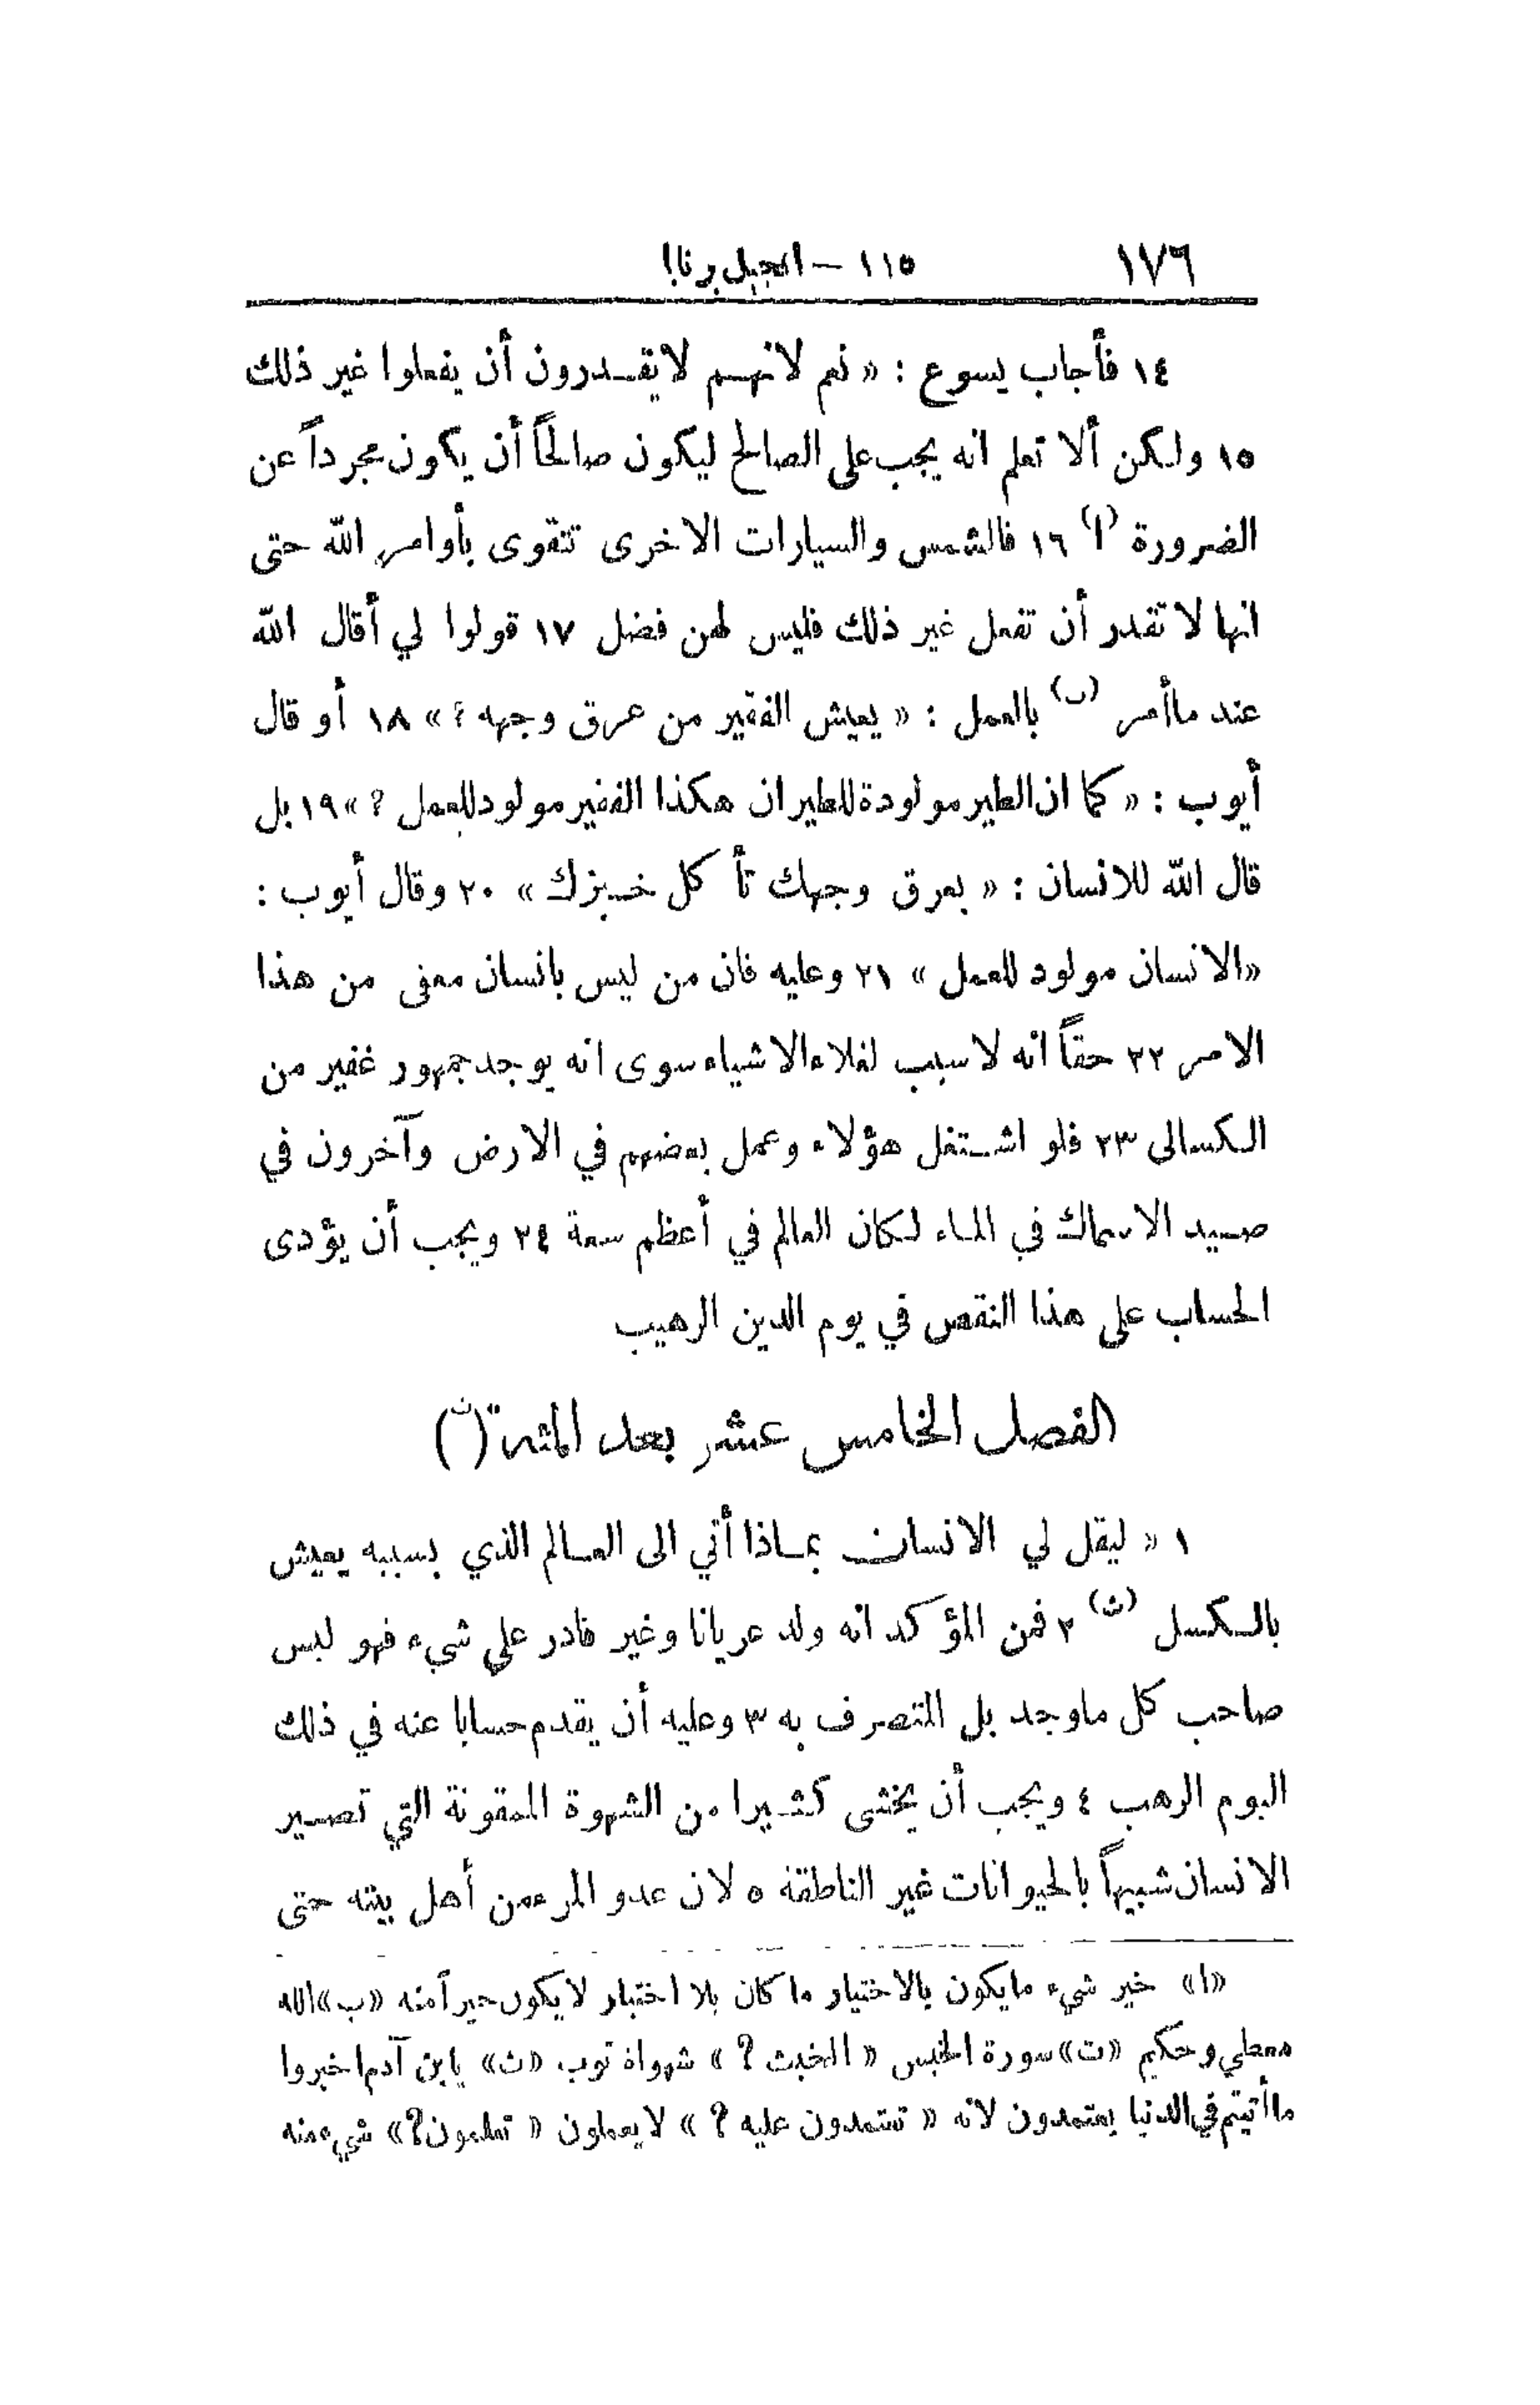 ١٧٦ ١١٥ — انجيل برنابا
١٤ فأجاب يسوع : « نعم لانهم لايقدرون أن يفعلوا غير ذلك
١٥ ولكن ألا تعلم انه يجب على الصالح ليكون صالحاً أن يكون مجرداً عن
الضرورة (ا) ١٦ فالشمس والسيارات الاخرى تتقوى بأوامر الله حتى
انها لا تقدر أن تفعل غير ذلك فليس لهن فضل ١٧ قولوا لي أقال الله
عند ماأمر (ب) بالعمل : « يعيش الفقير من عرق وجهه ؟ » ١٨ أو قال
أيوب : « كما ان الطير مولودة للطيران هكذا الفقير مولود للعمل ؟ » ١٩ بل
قال الله للانسان : « بعرق وجهك تأكل خبزك » ٢٠ وقال أيوب :
«الانسان مولود للعمل » ٢١ وعليه فان من ليس بانسان معفى من هذا
الامر ٢٢ حقاً انه لا سبب لغلاء الاشياء سوى انه يوجد جمهور غفير من
الكسالى ٢٣ فلو اشتغل هؤلاء وعمل بعضهم في الارض وآخرون في
صيد الاسماك في الماء لكان العالم في أعظم سعة ٢٤ ويجب أن يؤدى
الحساب على هذا النقص في يوم الدين الرهيب
الفصل الخامس عشر بعد المئة (ت)
١ « ليقل لي الانسان بماذا أتي الى العالم الذي بسببه يعيش
بالكسل (ث) ٢ فمن المؤكد انه ولد عريانا وغير قادر على شيء فهو ليس
صاحب كل ماوجد بل المتصرف به ٣ وعليه أن يقدم حسابا عنه في ذلك
اليوم الرهب ٤ ويجب أن يخشى كثيرا من الشهوة الممقوتة التي تصير
الانسان شبيهاً بالحيوانات غير الناطقة ٥ لان عدو المرء من أهل بيته حتى
«ا» خير شيء مايكون بالاختيار ما كان بلا اختيار لا يكون خيراً منه «ب» الله
معطي وحكيم «ت» سورة الخبس « الخبث ؟ » شهواة توب «ث» يا بن آدم اخبروا
ما أتيتم في الدنيا يعتمدون لانه « تعتمدون عليه ؟ » لا يعملون « تعلمون؟ » شيء منه